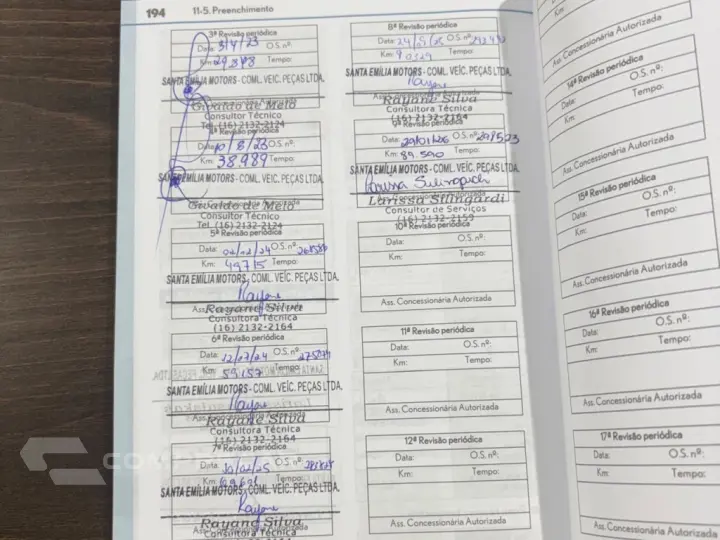 194 11-5. Preenchimento
3ª Revisão periódica
Data: 3/4/23 O.S. nº:
Km: 29.393 Tempo:
SANTA EMÍLIA MOTORS - COML. VEÍC. PEÇAS LTDA.
Givaldo de Melo
Consultor Técnico
Tel. (16) 2132-2124
4ª Revisão periódica
Data: 10/8/23 O.S. nº:
Km: 38.989 Tempo:
SANTA EMÍLIA MOTORS - COML. VEÍC. PEÇAS LTDA.
Givaldo de Melo
Consultor Técnico
Tel. (16) 2132-2124
5ª Revisão periódica
Data: 02/02/24 O.S. nº:
Km: 49715 Tempo:
SANTA EMÍLIA MOTORS - COML. VEÍC. PEÇAS LTDA.
Rayane
Rayane Silva
Consultora Técnica
(16) 2132-2164
6ª Revisão periódica
Data: 12/07/24 O.S. nº:
Km: 59157 Tempo:
SANTA EMÍLIA MOTORS - COML. VEÍC. PEÇAS LTDA.
Rayane
Rayane Silva
Consultora Técnica
(16) 2132-2164
7ª Revisão periódica
Data: 20/02/25 O.S. nº:
Km: 69621 Tempo:
SANTA EMÍLIA MOTORS - COML. VEÍC. PEÇAS LTDA.
Rayane
Rayane Silva
Consultora Técnica
8ª Revisão periódica
Data: O.S. nº:
Km: Tempo:
SANTA EMÍLIA MOTORS - COML. VEÍC. PEÇAS LTDA.
Rayane
Rayane Silva
Consultora Técnica
(16) 2132-2164
9ª Revisão periódica
Data: 29/01/26 O.S. nº: 298523
Km: 89.590 Tempo:
SANTA EMÍLIA MOTORS - COML. VEÍC. PEÇAS LTDA.
Larissa Silingardi
Larissa Silingardi
Consultor de Serviços
(16) 2132-2159
10ª Revisão periódica
Data: O.S. nº:
Km: Tempo:
Ass. Concessionária Autorizada
11ª Revisão periódica
Data: O.S. nº:
Km: Tempo:
Ass. Concessionária Autorizada
12ª Revisão periódica
Data: O.S. nº:
Km: Tempo:
Ass. Concessionária Autorizada
Ass. Concessionária Autorizada
14ª Revisão periódica
Data: O.S. nº:
Km: Tempo:
Ass. Concessionária Autorizada
15ª Revisão periódica
Data: O.S. nº:
Km: Tempo:
Ass. Concessionária Autorizada
16ª Revisão periódica
Data: O.S. nº:
Km: Tempo:
Ass. Concessionária Autorizada
17ª Revisão periódica
Data: O.S. nº:
Km: Tempo:
Ass. Concessionária Autorizada